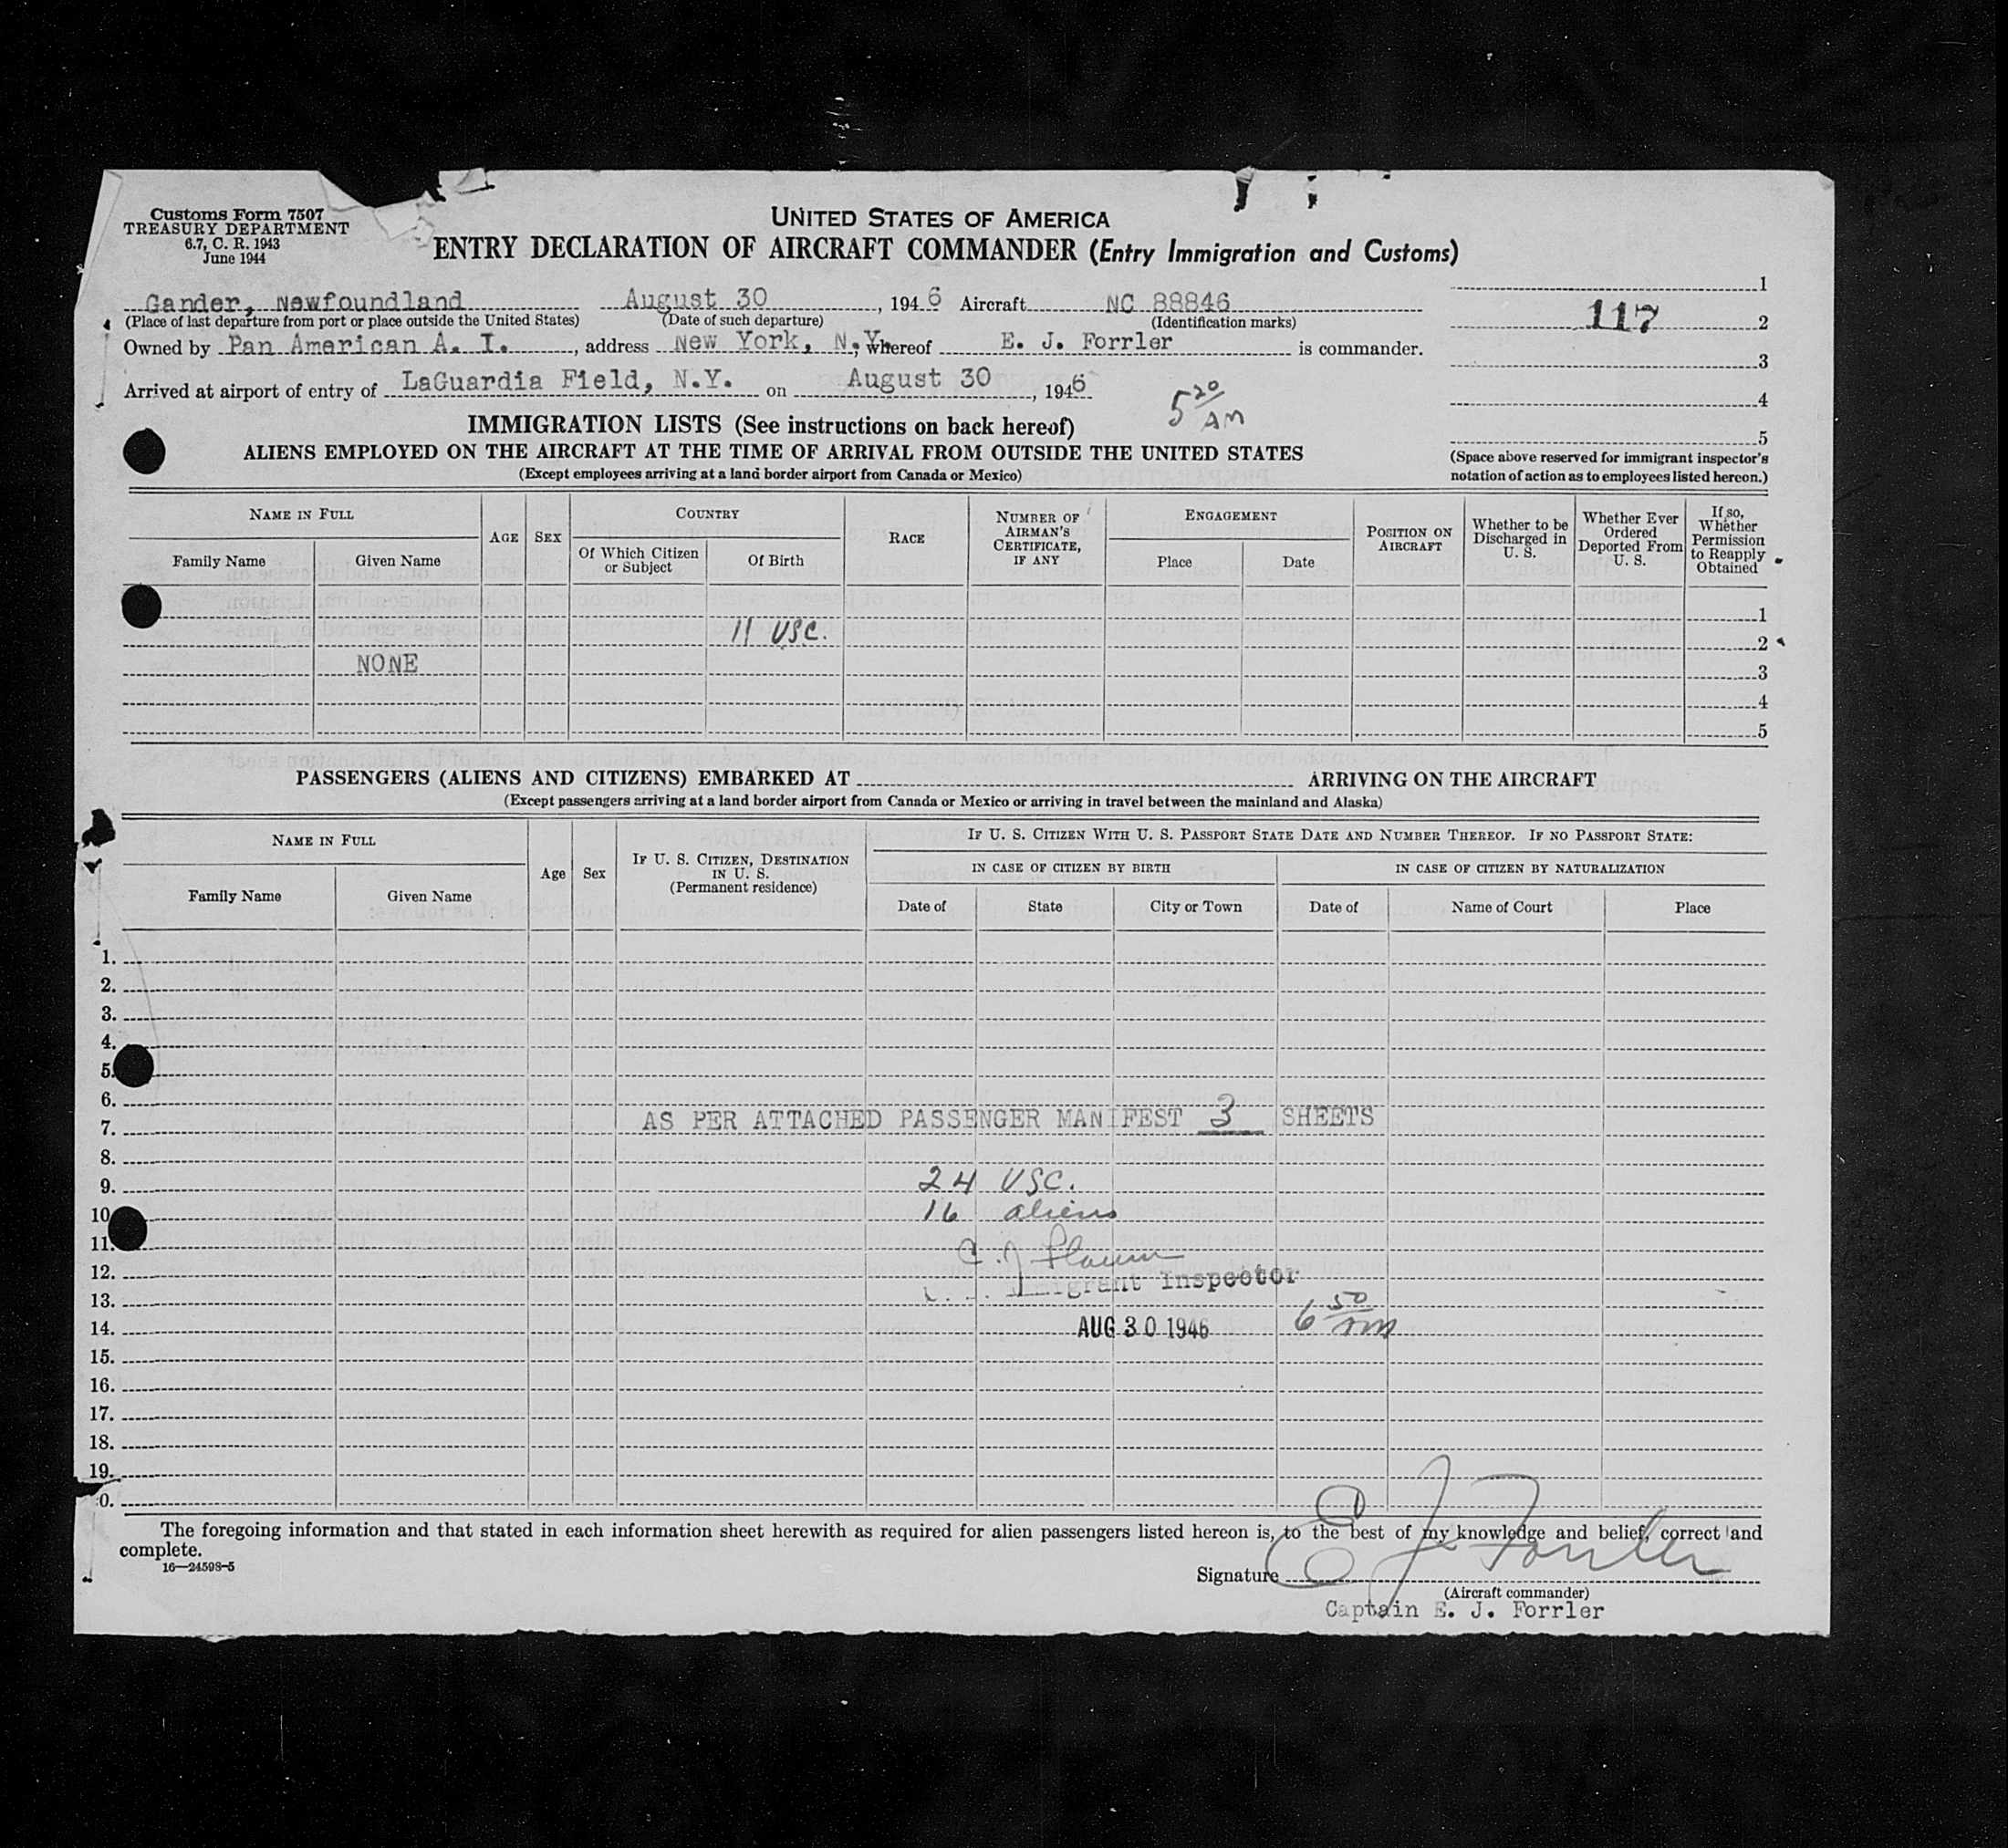 Customs Form 7507
TREASURY DEPARTMENT
6.7, C. R. 1943
June 1944
UNITED STATES OF AMERICA
ENTRY DECLARATION OF AIRCRAFT COMMANDER (Entry Immigration and Customs)
Gander, Newfoundland August 30, 1946 Aircraft NC 88846
(Place of last departure from port or place outside the United States) (Date of such departure) (Identification marks)
Owned by Pan American A. I., address New York, N.Y. whereof E. J. Forrler is commander.
Arrived at airport of entry of LaGuardia Field, N.Y. on August 30, 1946
5 20 AM
1
117 2
3
4
5
(Space above reserved for immigrant inspector's
notation of action as to employees listed hereon.)
IMMIGRATION LISTS (See instructions on back hereof)
ALIENS EMPLOYED ON THE AIRCRAFT AT THE TIME OF ARRIVAL FROM OUTSIDE THE UNITED STATES
(Except employees arriving at a land border airport from Canada or Mexico)
NAME IN FULL
Family Name Given Name
AGE SEX
COUNTRY
Of Which Citizen or Subject Of Birth
RACE
NUMBER OF AIRMAN'S CERTIFICATE, IF ANY
ENGAGEMENT
Place Date
POSITION ON AIRCRAFT
Whether to be Discharged in U. S.
Whether Ever Ordered Deported From U. S.
If so, Whether Permission to Reapply Obtained
1
11 USC. 2
NONE 3
4
5
PASSENGERS (ALIENS AND CITIZENS) EMBARKED AT ARRIVING ON THE AIRCRAFT
(Except passengers arriving at a land border airport from Canada or Mexico or arriving in travel between the mainland and Alaska)
NAME IN FULL
Family Name Given Name
Age Sex
IF U. S. CITIZEN, DESTINATION IN U. S.
(Permanent residence)
IF U. S. CITIZEN WITH U. S. PASSPORT STATE DATE AND NUMBER THEREOF. IF NO PASSPORT STATE:
IN CASE OF CITIZEN BY BIRTH IN CASE OF CITIZEN BY NATURALIZATION
Date of State City or Town Date of Name of Court Place
1.
2.
3.
4.
5.
6.
7. AS PER ATTACHED PASSENGER MANIFEST 3 SHEETS
8.
9. 24 USC.
10 16 aliens
11.
12. Immigrant Inspector
13.
14. AUG 30 1946 6 50 AM
15.
16.
17.
18.
19.
0.
The foregoing information and that stated in each information sheet herewith as required for alien passengers listed hereon is, to the best of my knowledge and belief, correct and
complete.
16—24598-5
Signature E J Forrler
(Aircraft commander)
Captain E. J. Forrler